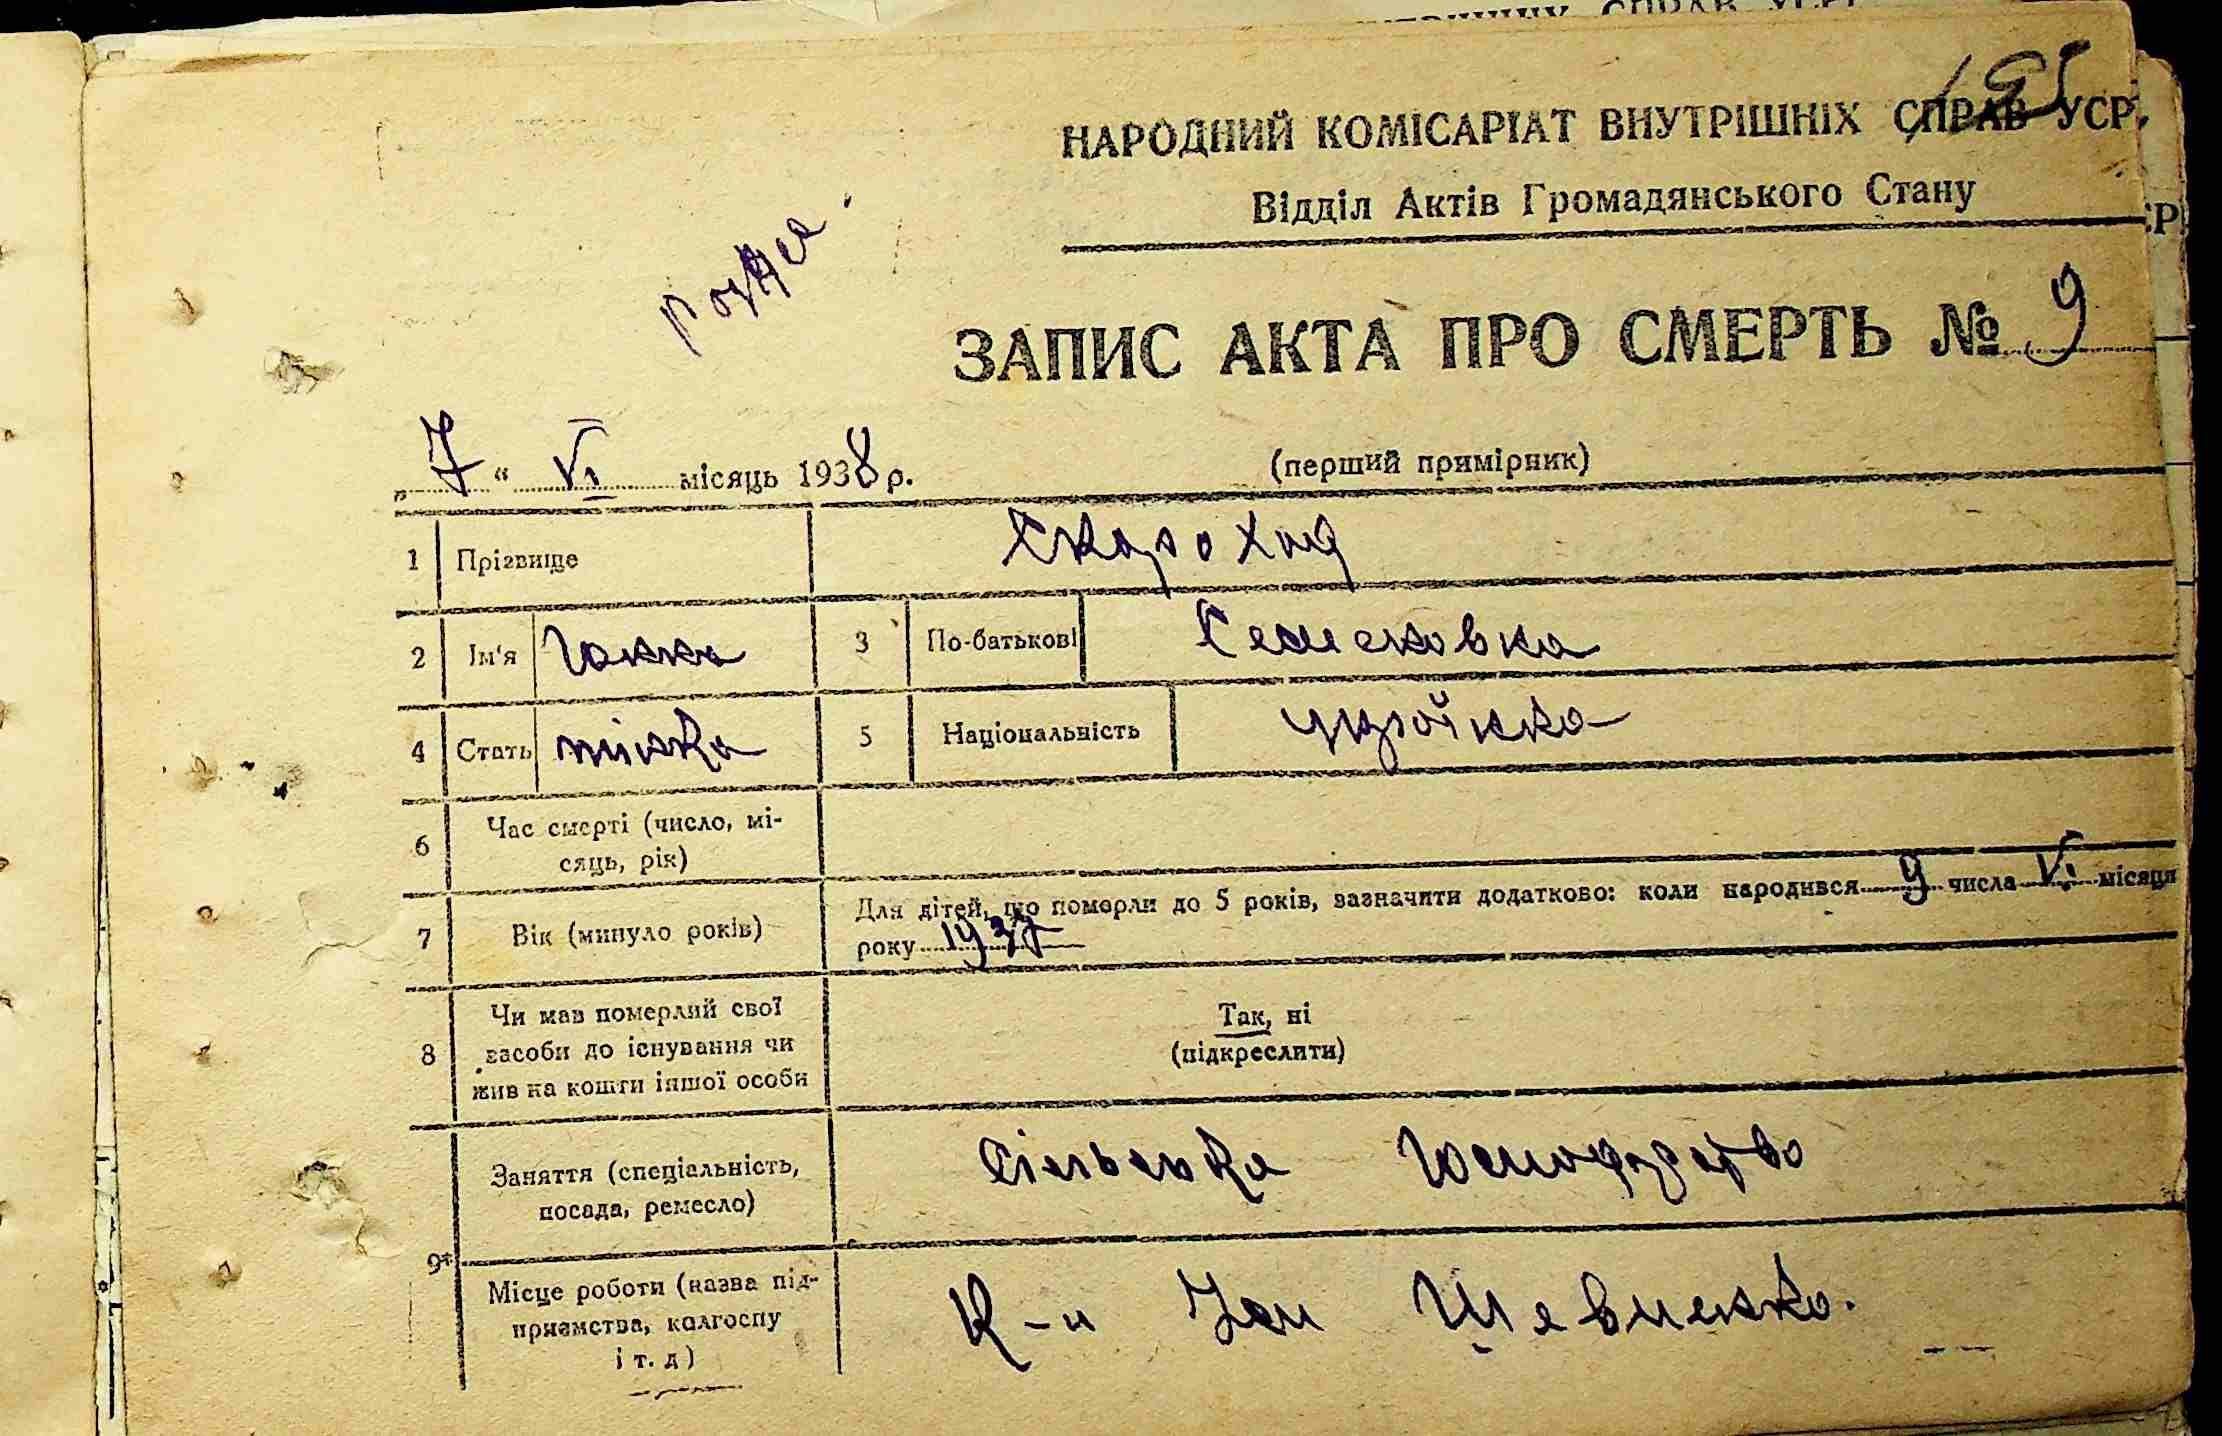 195
НАРОДНИЙ КОМІСАРІАТ ВНУТРІШНІХ СПРАВ УСРР
Відділ Актів Громадянського Стану
ЗАПИС АКТА ПРО СМЕРТЬ № 9
„7“ VI місяць 1938 р.
(перший примірник)
1 Прізвище Скороход
2 Ім'я Ганна 3 По-батькові Семеновна
4 Стать жінка 5 Національність українка
6 Час смерті (число, мі-
сяць, рік)
7 Вік (минуло років) Для дітей, що померли до 5 років, зазначити додатково: коли народився 9 числа VI місяця
року 1937
8 Чи мав померлий свої
засоби до існування чи
жив на кошти іншої особи
Так, ні
(підкреслити)
9* Заняття (спеціальність,
посада, ремесло)
сільське господарство
Місце роботи (назва під-
приємства, колгоспу
і т. д)
К-п Шевченко.